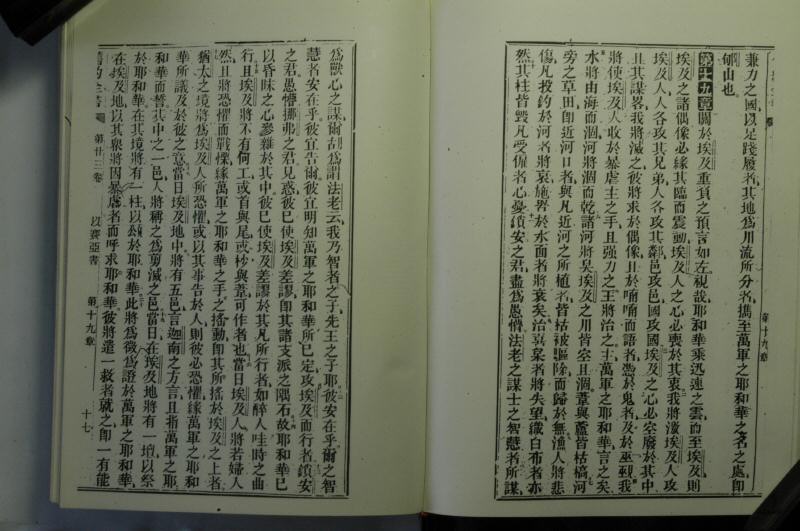 兼力之國以足踐履者其地爲川流所分者攜至萬軍之耶和華之名之處卽
郇山也
第十九章關於埃及重負之預言如左視哉耶和華乘迅速之雲而至埃及則
埃及之諸偶像必緣其臨而震動埃及人之心必喪於其衷我將激埃及人攻
埃及人人各攻其兄弟人各攻其鄰邑攻邑國攻國埃及之心必空廢於其中
且其謀畧我將滅之彼將求於偶像且於喃喃而語者憑於鬼者及於巫覡我
將使埃及人收於暴虐主之手且强力之王將治之主萬軍之耶和華言之矣
水將由海而涸河將涸而乾諸河將臭埃及之川皆空且涸葦與蘆皆枯槁河
旁之草田卽近河口者與凡近河之所植者皆枯被驅除而歸於無漁人將悲
傷凡投釣於河者將哀施網於水面者將衰矣治枲者將失望織白布者亦
然其柱皆毀凡受傭者心憂鎖安之君盡爲愚憒法老之謀士之智慧者所謀
第十九章
爲獸心之謀爾胡爲謂法老云我乃智者之子先王之子耶彼安在乎爾之智
慧者安在乎彼宜告爾彼宜明知萬軍之耶和華所已定攻埃及而行者鎖安
之君愚憒挪弗之君見惑彼已使埃及差謬卽其諸支派之隅石故耶和華已
以昏昧之心參雜於其中彼已使埃及差謬於其凡所行者如醉人哇時之曲
行且埃及將不有何工或首與尾或杪與葦可作者也當日埃及人將若婦人
然且將恐懼而戰慄緣萬軍之耶和華之手之搖動卽其所搖於埃及之上者
猶太之境將爲埃及人所恐懼或以其事告於人則彼必恐懼緣萬軍之耶和
華所議及於彼之意當日埃及地中將有五邑言迦南之方言且指萬軍之耶
和華而誓其中之一邑人將稱之爲剪滅之邑當日在埃及地將有一壇以祭
於耶和華在其境將有一柱以歸於耶和華此將爲徵爲證於萬軍之耶和華
在埃及地以其衆將因暴虐者而呼求耶和華彼將遣一救者就之卽一有能
第廿三卷
以賽亞書
第十九章
十七